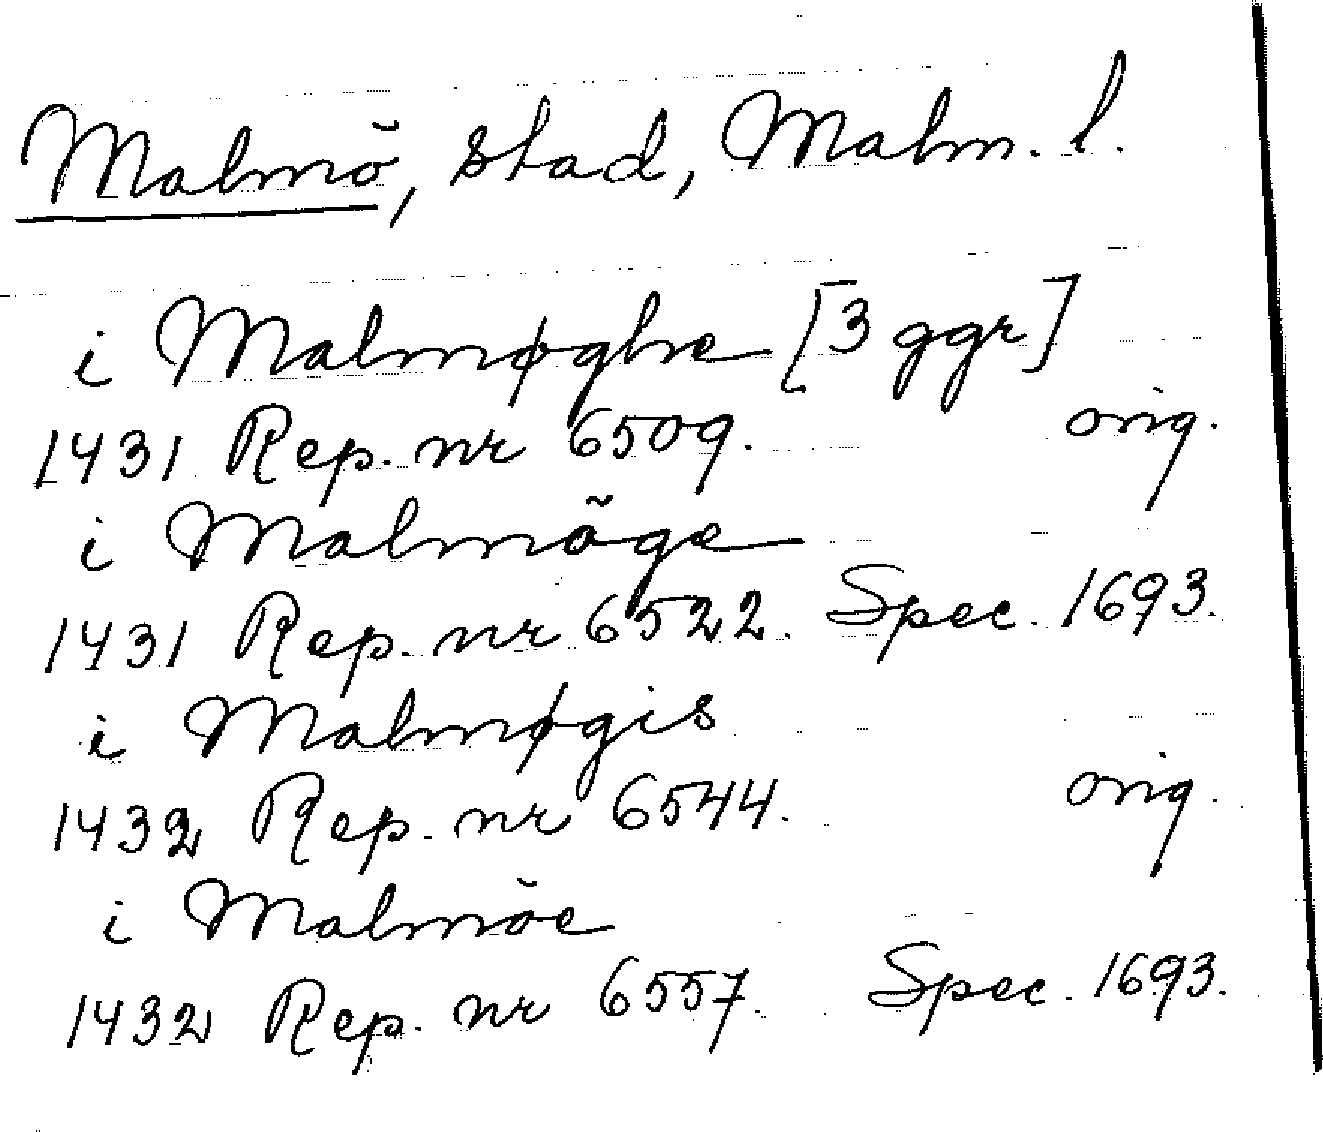 Malmö, stad, Malm. l.
i Malmøghe [3 ggr]
1431 Rep. nr 6509. orig.
i Malmöge
1431 Rep. nr 6522. Spec. 1693.
i Malmøgis
1432 Rep. nr 6544. orig.
i Malmöe
1432 Rep. nr 6557. Spec. 1693.